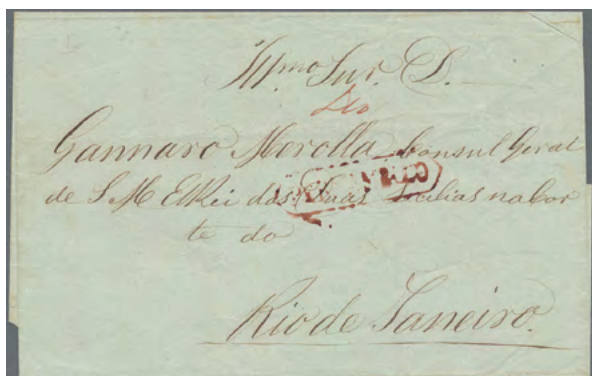 Illmo Snr. D.
Gannaro Merolla Consul Geral
de S M ElRei das Duas Sicilias na Cor
te do
Rio de Janeiro.